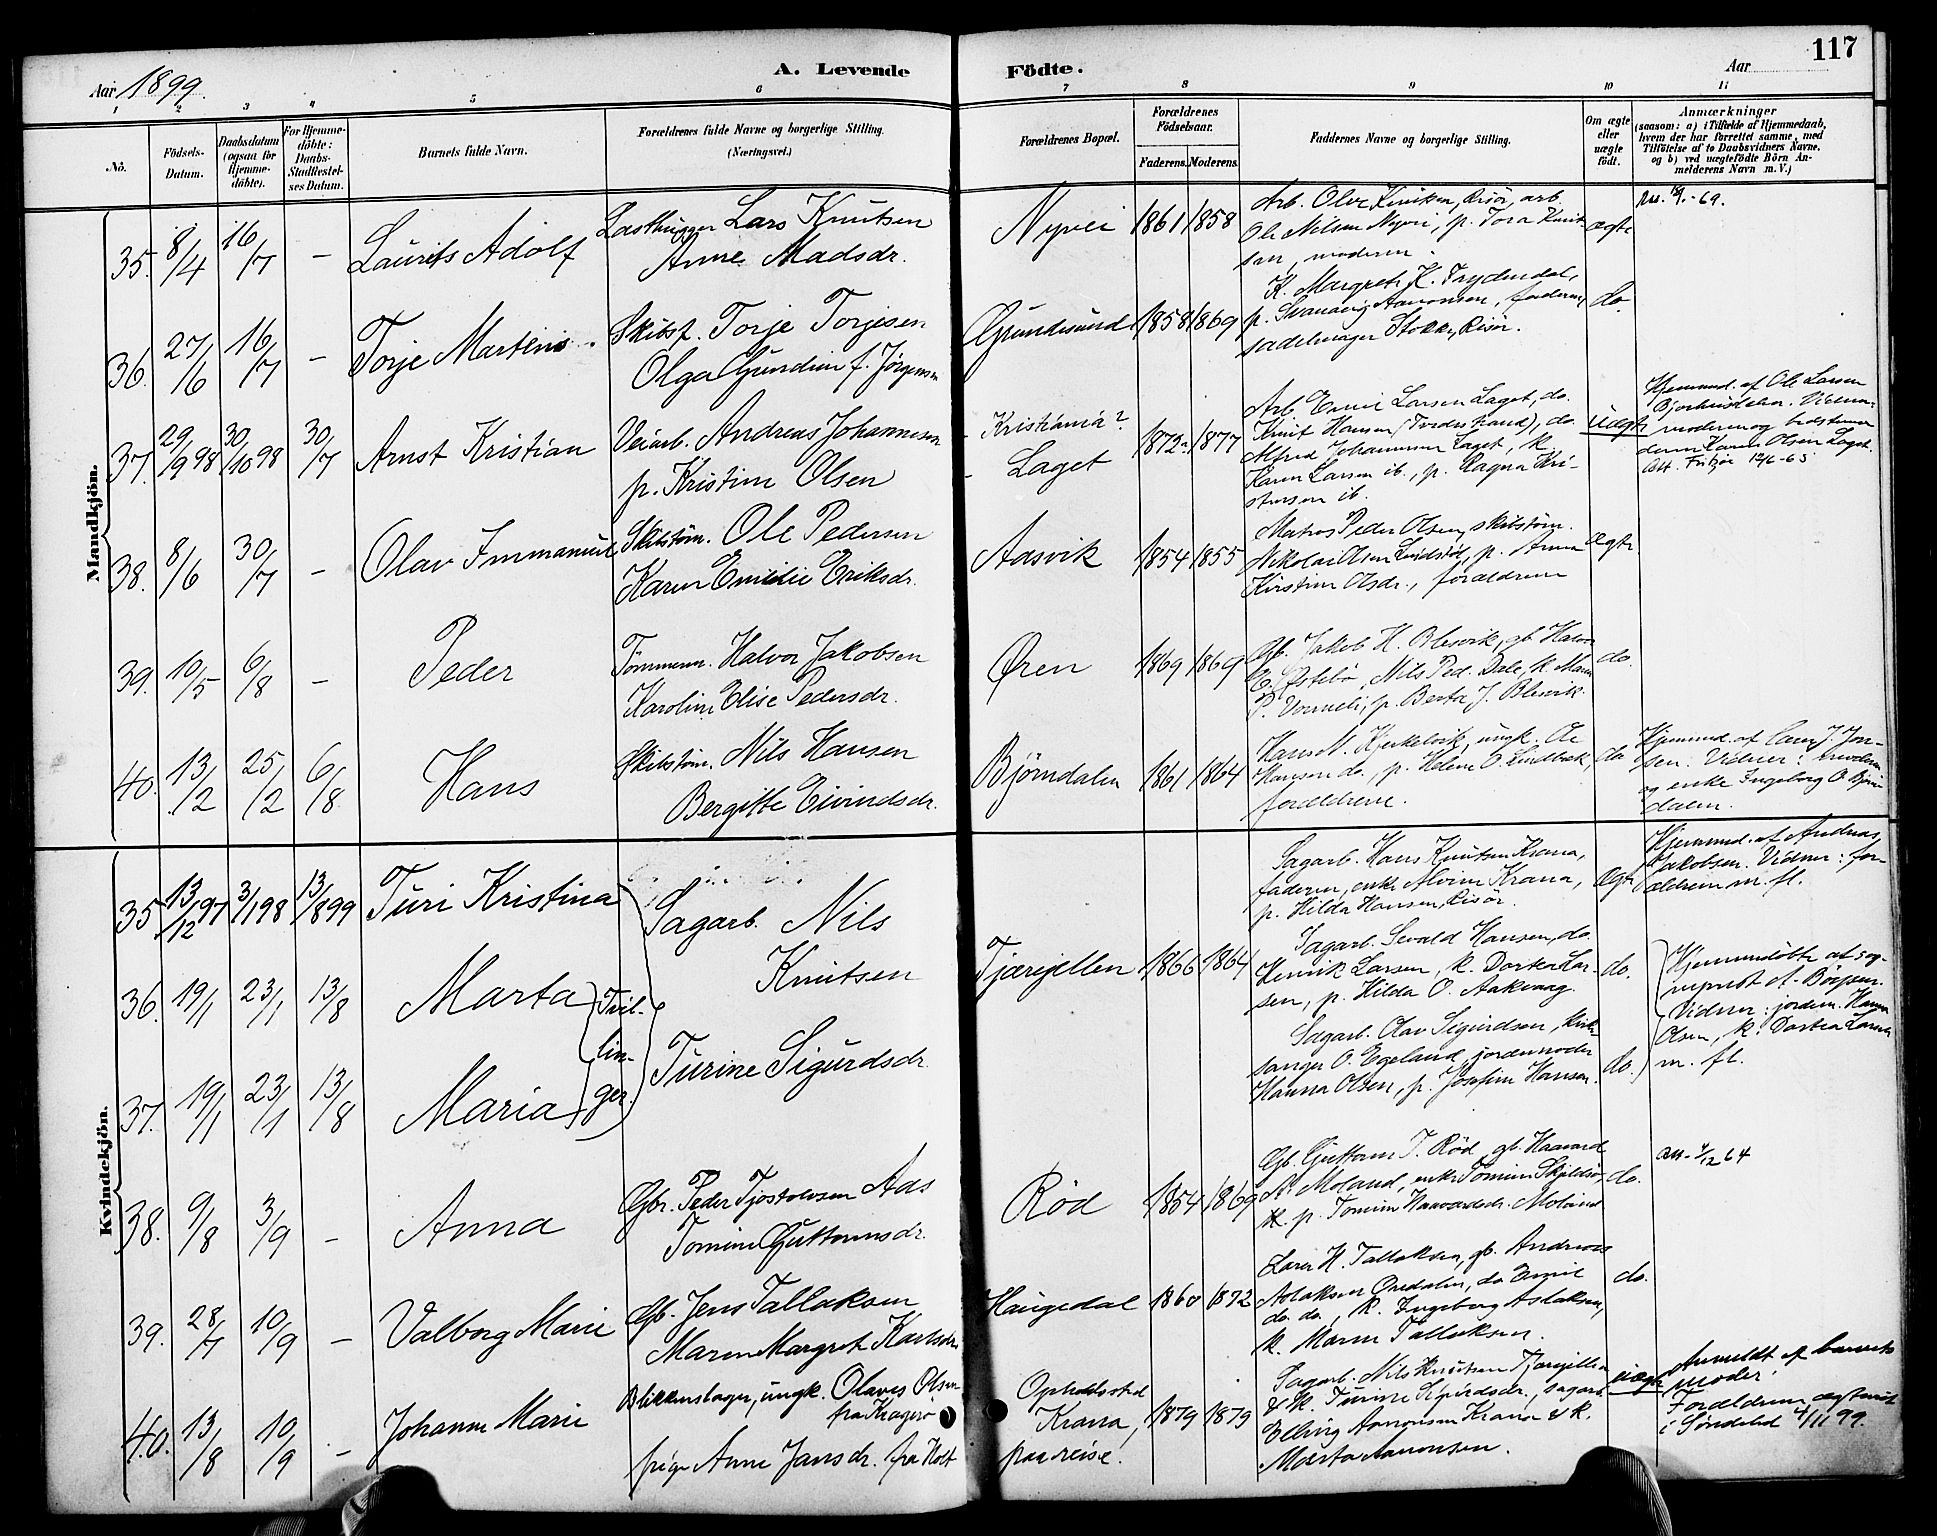 117
Aar 1899.
A. Levende Födte.
Aar
1 2 3 4 5 6 7 8 9 10 11
No.
Födsels-Datum.
Daabsdatum (ogsaa for Hjemme-döbte).
For Hjemme-döbte: Daabs-Stadfæstel-ses Datum.
Barnets fulde Navn.
Forældrenes fulde Navne og borgerlige Stilling.
(Næringsvei.)
Forældrenes Bopæl.
Forældrenes Födselsaar.
Faderens. Moderens.
Faddernes Navne og borgerlige Stilling.
Om ægte eller uægte födt.
Anmærkninger
(saasom: a) i Tilfælde af Hjemmedaab, hvem der har forrettet samme, med Tilföielse af to Daabsvidners Navne, og b) ved uægtefödte Börn Anmelderens Navn m. V.)
Mandkjön.
35. 8/4 16/7 – Laurits Adolf
Lars Knutsen
Anne Madsdr.
Nyvei 1861 1858
Ole Nilsen
moderen.
ægte
36. 27/6 16/7 – Torje Martin
Skibsf. Torje Torjesen
Olga Gundine f. Jørgensen
Grundesund 1858 1869
K. Margrete K. Frydendal,
sadelmager Stokke, Risør.
do.
37. 29/9 98 30/10 98 30/7 Arnst Kristian
Veiarb. Andreas Johannesen
p. Kristine Olsen
- Kristiania?
- Laget
1872 1877
Arb. Emil Larsen Laget, do.
Knut Hansen (Tvedestrand), do.
Alfred Johannesen Laget, k.
Karen Larsen ib., p. Ragna Kri-
stensen ib.
uægte
Hjemmed. af Ole Larsen
deren Karen Olsen Laget.
38. 8/6 30/7 – Olav Immanuel
Skibstøm. Ole Pedersen
Karen Emilie Eriksdr.
Aasvik 1854 1855
Matros Peder Olsen, skibstøm.
Nikolai Olsen Lindstøl, p. Anna
Kirstine Olsdr., forældrene
ægte
39. 10/5 6/8 – Peder
Tømmerm. Halvor Jakobsen
Karoline Elise Pedersdr.
Øren 1869 1869
Gb. Jakob H. Blesvik, gb. Halvor
E. Østebø, Nils Ped. Dale, k. Maren
P. Vormeli, p. Berta J. Blesvik.
do.
40. 13/2 25/2 6/8 Hans
Skibstøm. Nils Hansen
Bergitte Eivindsdr.
Bjørndalen 1861 1864
Hans N. Kjerkelvik, ungk. Ole
Hansen do., p. Helene O. Lindbæk,
forældrene.
do.
Hjemmed. af
sen. Vidner: moderen
og enke Ingeborg O. Bjørn-
dalen.
Kvindekjön.
35. 13/12 97 3/1 98 13/8 99 Turi Kristina
Sagarb. Nils
Knutsen
Turine Sigurdsdr.
Sagarb. Hans Knutsen Krana,
faderen, enke Alvine Krana,
p. Hilda Hansen, Risør.
ægte
Hjemmed. af Andreas
Jakobsen. Vidner: for-
ældrene m. fl.
36. 19/1 23/1 13/8 Marta
Tvil-
lin-
ger.
Tjærejellen 1866 1864
Sagarb. Sevald Hansen, do.
Henrik Larsen, k. Dortea Lar-
sen, p. Hilda O. Aakvaag.
do.
Hjemmedøbte af sog-
neprest A. Børresen.
Vidner: jordem. Hanna
Olsen, k. Dortea Larsen
m. fl.
37. 19/1 23/1 13/8 Maria
Sagarb. Olav Sigurdsen, kirke-
sanger O. Egeland, jordemoder
Hanna Olsen, p. Josefine Hansen.
do.
38. 9/8 3/9 – Anna
Gbr. Peder Tjostolvsen Aas
Tomine Guttormsdr.
Rød 1854 1869
Gb. Guttorm T. Rød, gb. Haavard
A. Moland, enke Tomine Skjeldsø,
p. Tomine Haavardsdr. Moland
do.
39. 28/7 10/9 – Valborg Marie
Gb. Jens Tallaksen
Maren Margret Karlsdr.
Haugedal 1860 1872
Lærer H. Tallaksen, gb. Andreas
Aslaksen Øvedalen, do Emil
do. do., k. Ingeborg Aslaksen,
k. Maren Tallaksen.
do.
40. 13/8 10/9 – Johanne Marie
Blikkenslager, ungk. Olaves Olsen
fra Kragerø
pige Anne Jansdr. fra Holt
Opholdssted
Krana,
paa reise.
1879 1879
Sagarb. Nils Knutsen Tjærejellen
& k. Turine Sigurdsdr., sagarb.
Elling Aanonsen Krana & k.
Marta Aanonsen.
uægte
Anmeldt af barnets
moder.
Forældrene ægteviet
i Søndeled 4/11 99.